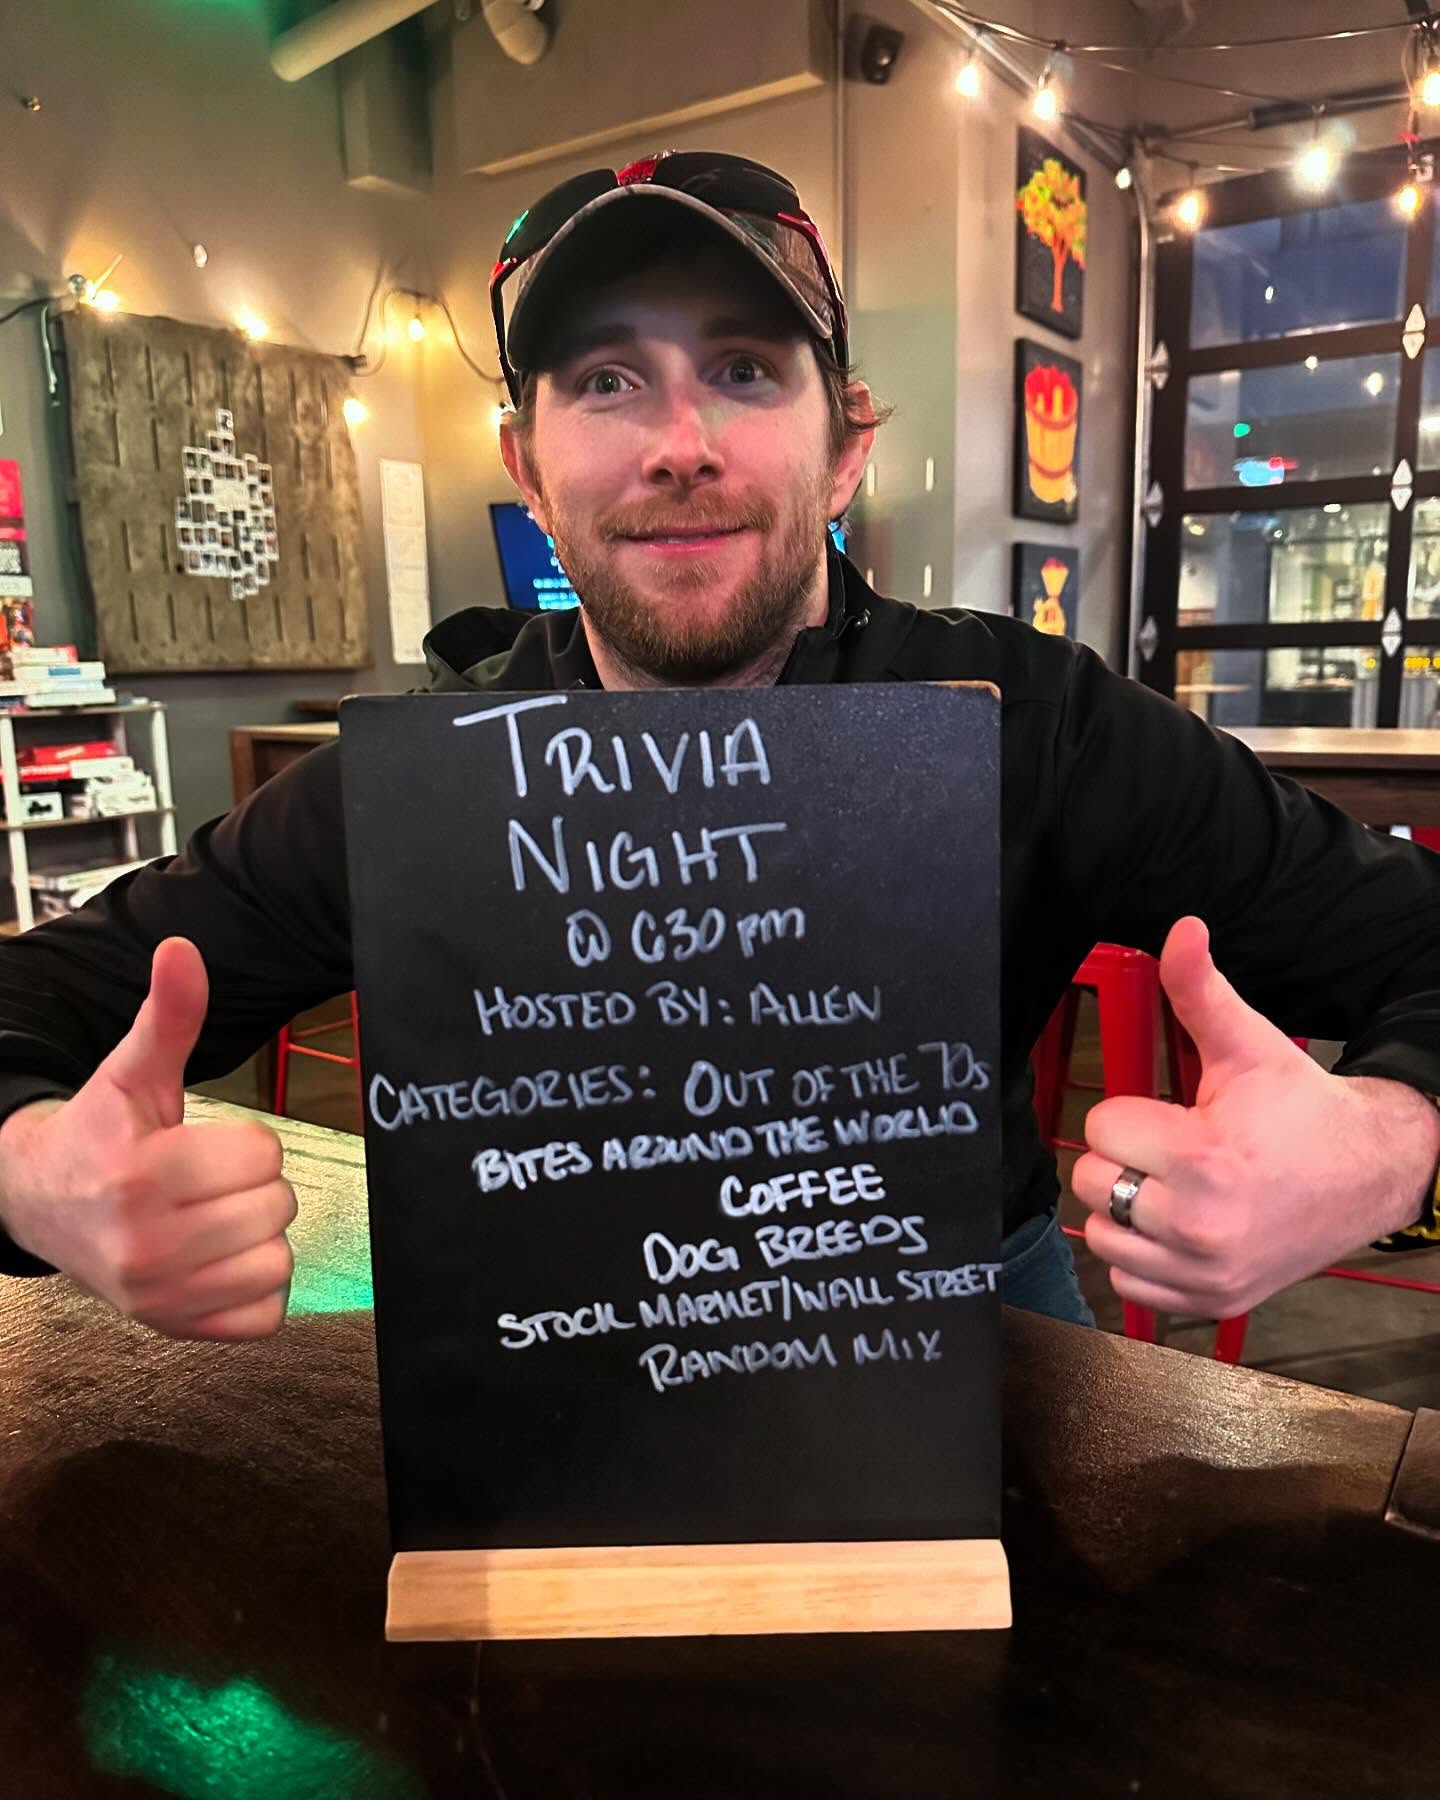 TRIVIA
NIGHT
@ 630 pm
HOSTED BY: ALLEN
CATEGORIES: OUT OF THE 70s
BITES AROUND THE WORLD
COFFEE
DOG BREEDS
STOCK MARKET/WALL STREET
RANDOM MIX